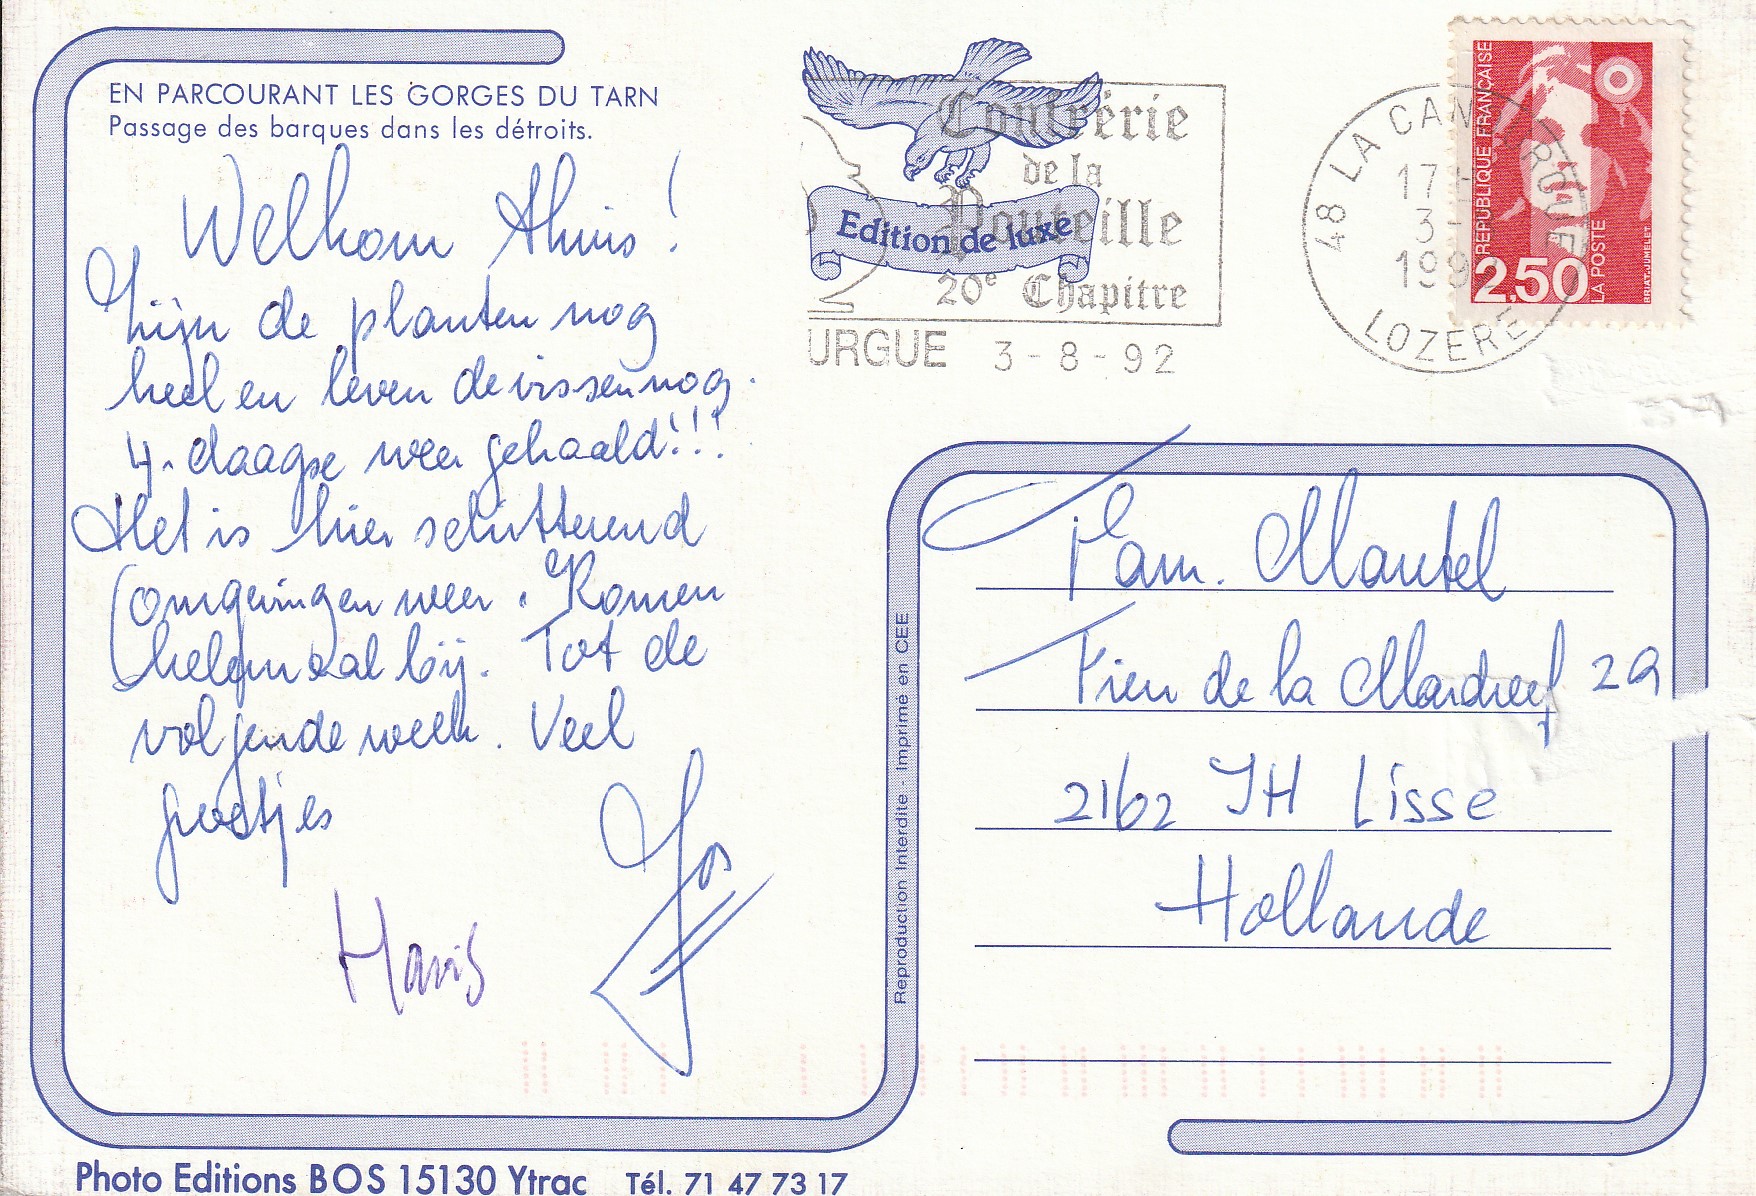 EN PARCOURANT LES GORGES DU TARN
Passage des barques dans les détroits.
Welkom thuis!
Zijn de planten nog
heel en leven de vissen nog.
4-daagse weer gehaald!!!
Het is hier schitterend
(omgeving en weer. Komen
helemaal bij. Tot de
volgende week. Veel
groetjes
Jos
Hans
Photo Editions BOS 15130 Ytrac Tél. 71 47 73 17
Reproduction Interdite - Imprimé en CEE
Edition de luxe
Confrérie
de la
Pouteille
20e Chapitre
URGUE 3-8-92
48 LA CANOURGUE
17H
3-
1992
LOZERE
REPUBLIQUE FRANÇAISE
2,50
LA POSTE
BRIAT-JUMELET
Fam. Mantel
de la 2a
2162 JH Lisse
Hollande